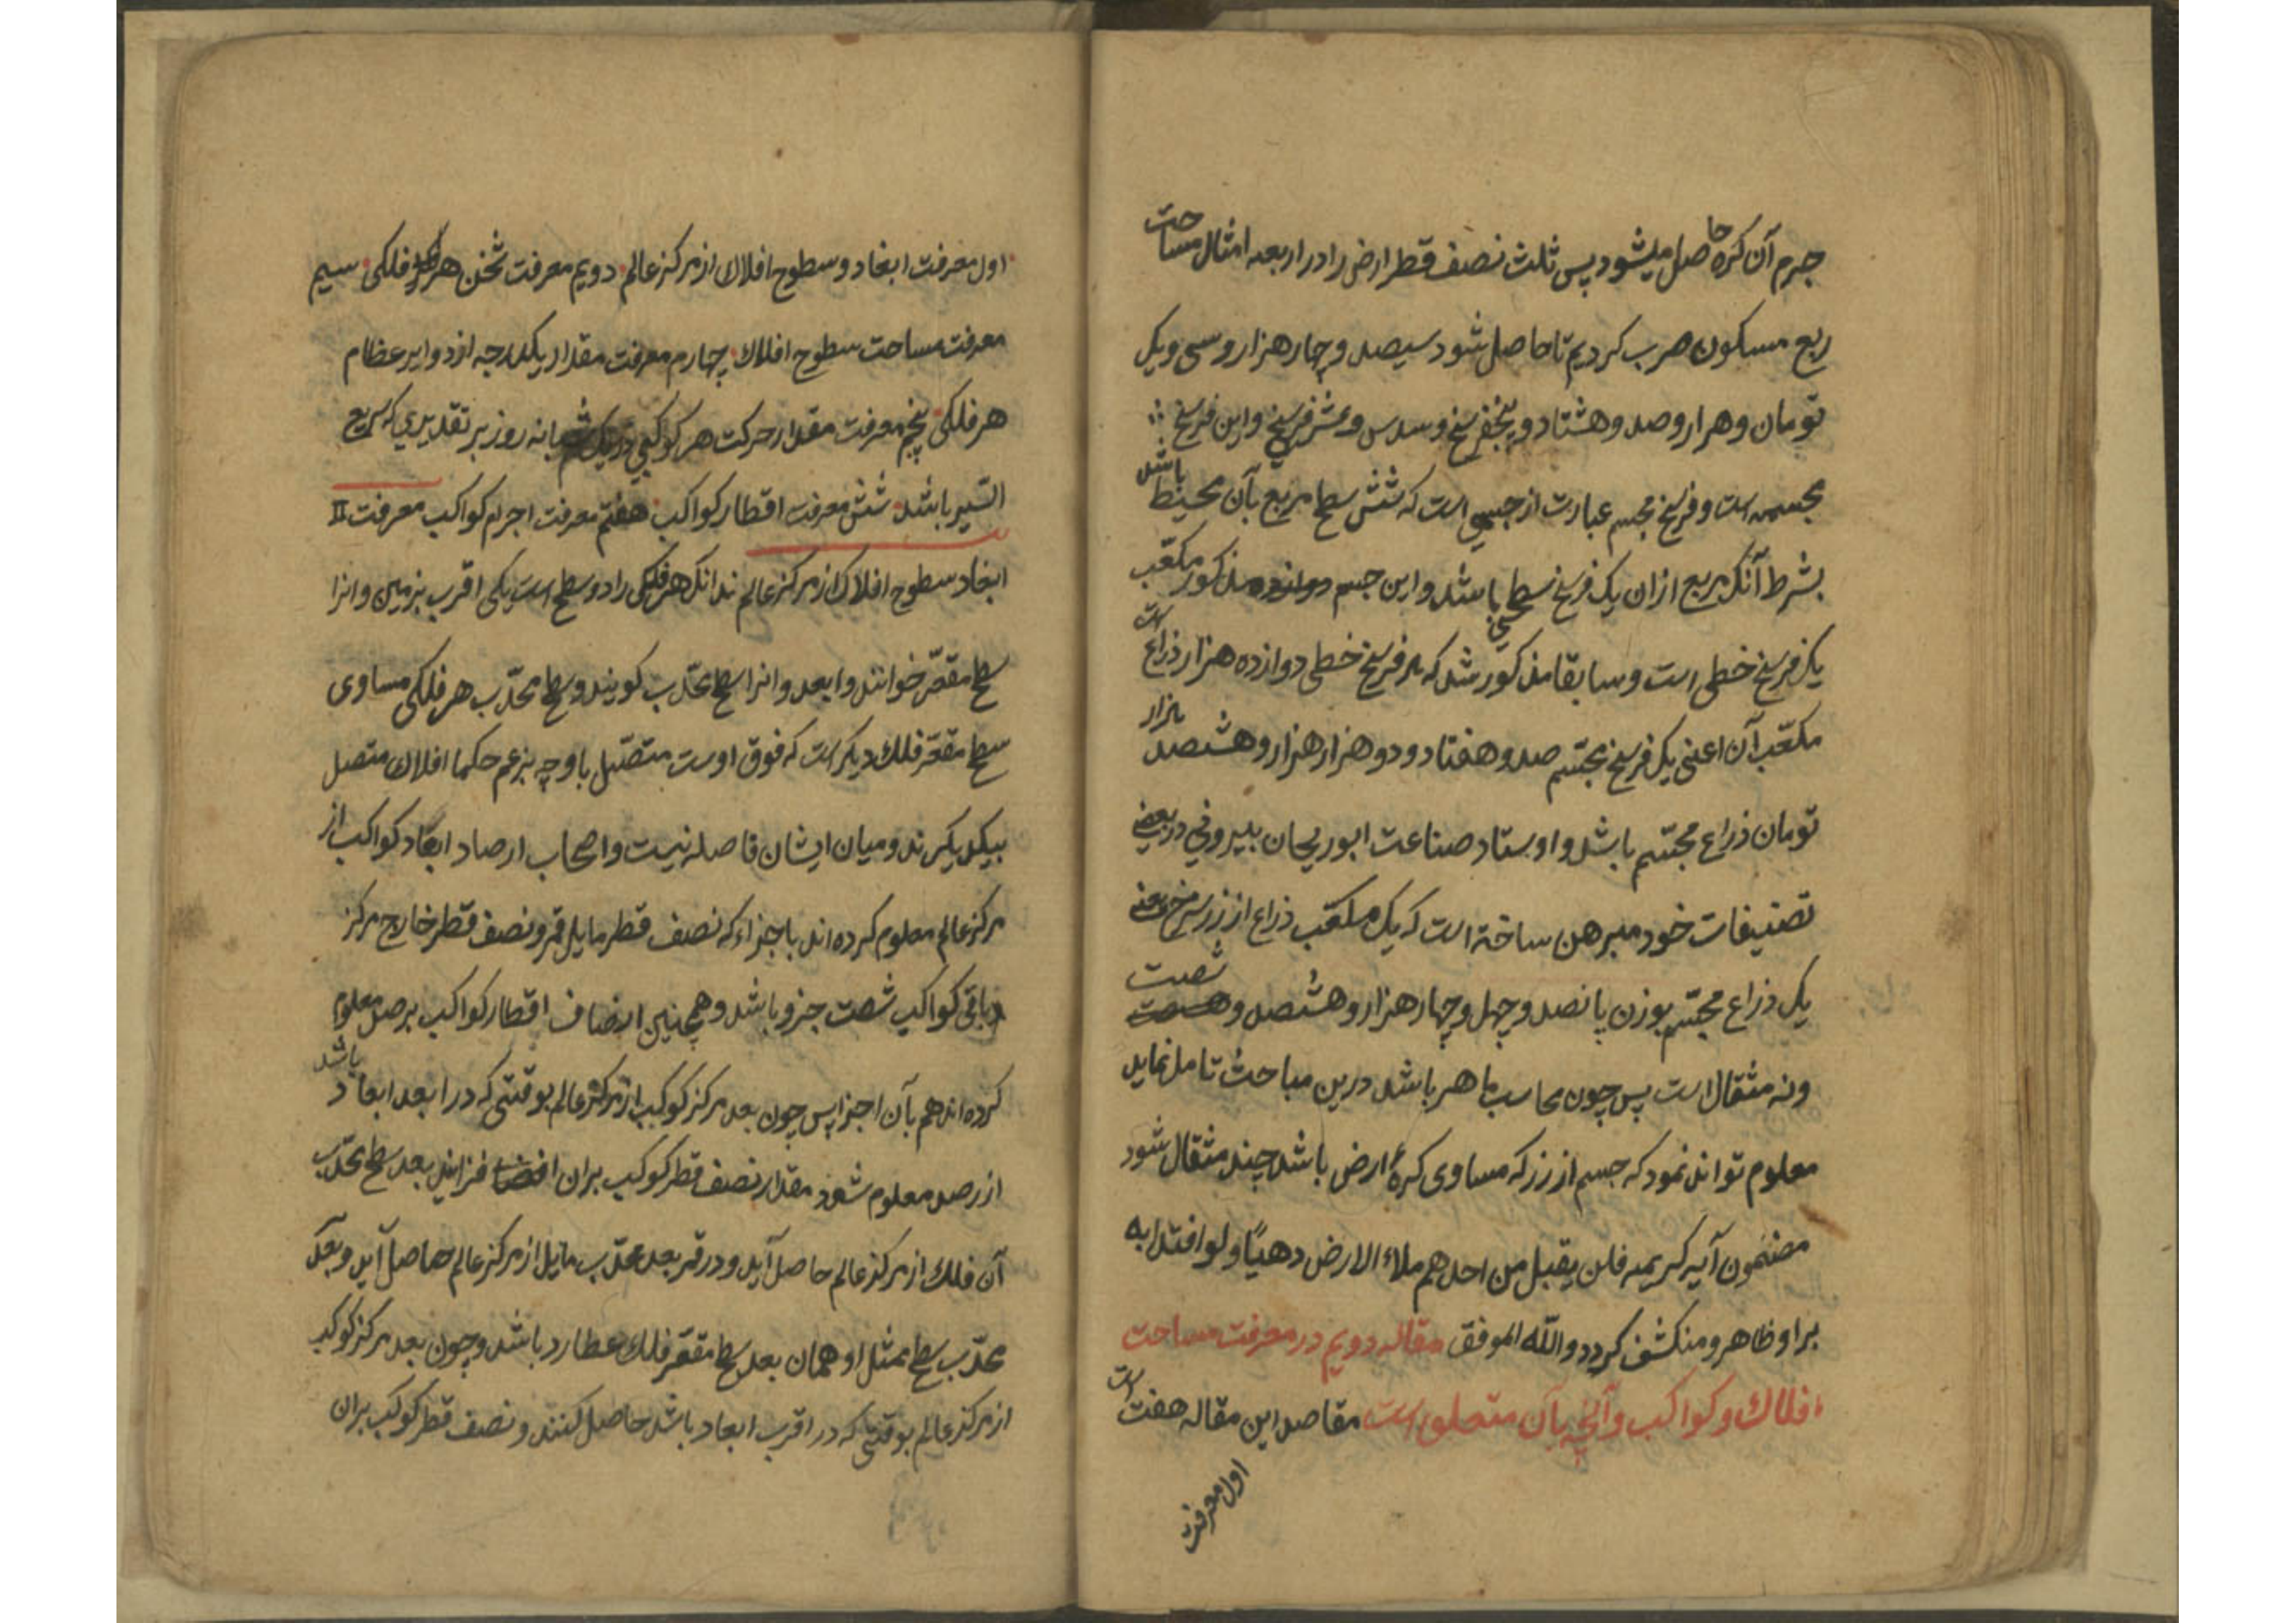 جرم آن کره حاصل میشود پس ثلث نصف قطر ارض را در اربعه امثال مساحت
ربع مسکون ضرب کردیم تا حاصل شود سیصد و چهار هزار و سی و یک
تومان و هزار و صد و هشتاد و پنجفرسخ و سدس و عشر فرسخ و این فرسخ
مجسمه است و فرسخ مجسم عبارت از جسمی است که شش سطح مربع بآن محیط باشد
بشرط آنکه مربع ازان یک فرسخ سطحی باشد و این جسم مذکور مکعب
یک فرسخ خطی است و سابقا مذکور شد که هر فرسخ خطی دوازده هزار ذراع است
مکعب آن اعنی یک فرسخ مجسّم صد و هفتاد و دو هزار هزار و هشتصد هزار
تومان ذراع مجسّم باشد و اوستاد صناعت ابوریحان بیرونی در بعضی
تصنیفات خود مبرهن ساخته است که یک مکعب ذراع از زر سرخ یعنی
یک ذراع مجسّم بوزن پانصد و چهل و چهار هزار و هشتصد و شصت
و نه مثقال است پس چون محاسب ماهر باشد درین مباحث تامل نماید
معلوم تواند نمود که جسم از زر که مساوی کرهٔ ارض باشد چند مثقال شود
مضمون آیه کریمه فلن یقبل من احدهم ملاء الارض دهبًا ولو افتدا به
براو ظاهر و منکشف کردد والله الموفق مقاله دویم در معرفت مساحت
افلاک و کواکب و آنچه بآن متعلق است مقاصد این مقاله هفت است
اول معرفت
اول معرفت ابعاد و سطوح افلاک از مرکز عالم دویم معرفت ثخن هر فلکی سیم
معرفت مساحت سطوح افلاک چهارم معرفت مقدار یکدرجه از دوایر عظام
هر فلکی پنجم معرفت مقدار حرکت هر کوکبی در یک شبانه روز بر تقدیری که سریع
السّیر باشد ششم معرفت اقطار کواکب هفتم معرفت اجرام کواکب معرفت
ابعاد سطوح افلاک از مرکز عالم بدانک هر فلکی را دو سطح است یکی اقرب بزمین و انرا
سطح مقعّر خوانند و ابعد و انرا سطح محدّب کویند و سطح محدّب هر فلکی مساوی
سطح مقعّر فلک دیکر است که فوق اوست متصّل باو چه بزعم حکما افلاک متصل
بیکدیکرند و میان ایشان فاصله نیست و اصحاب ارصاد ابعاد کواکب از
مرکز عالم معلوم کرده اند باجزاء که نصف قطر مایل قمر و نصف قطر خارج مرکز
باقی کواکب شصت جزو باشد و همچنین انصاف اقطار کواکب برصد معلوم
کرده اند هم بآن اجزا پس چون بعد مرکز کوکب از مرکز عالم بوقتی که در ابعد ابعاد باشد
از رصد معلوم شود مقدار نصف قطر کوکب بران افزایند بعد سطح محدّب
آن فلک از مرکز عالم حاصل آید و در قمر بعد محدّب مایل از مرکز عالم حاصل آید و بعد
محدّب سطح ممثل او همان بعد سطح مقعّر فلک عطارد باشد و چون بعد مرکز کوکب
از مرکز عالم بوقتی که در اقرب ابعاد باشد حاصل کنند و نصف قطر کوکب بران